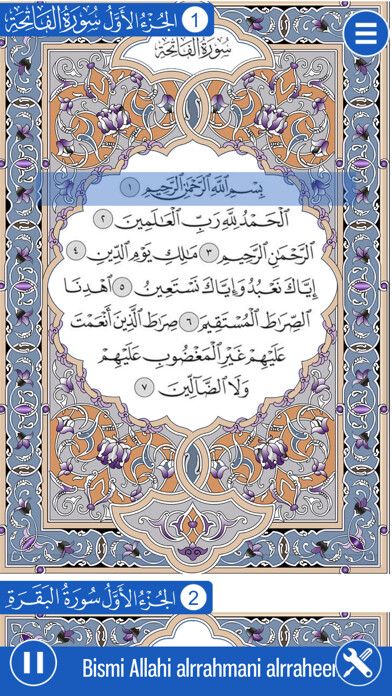 الجزء الأول سورة الفاتحة 1
سُورَةُ الفَاتِحَةِ
بِسْمِ اللَّهِ الرَّحْمَٰنِ الرَّحِيمِ ١
الْحَمْدُ لِلَّهِ رَبِّ الْعَالَمِينَ ٢
الرَّحْمَٰنِ الرَّحِيمِ ٣ مَالِكِ يَوْمِ الدِّينِ ٤
إِيَّاكَ نَعْبُدُ وَإِيَّاكَ نَسْتَعِينُ ٥ اهْدِنَا
الصِّرَاطَ الْمُسْتَقِيمَ ٦ صِرَاطَ الَّذِينَ أَنْعَمْتَ
عَلَيْهِمْ غَيْرِ الْمَغْضُوبِ عَلَيْهِمْ
وَلَا الضَّالِّينَ ٧
الجُزءُ الأَوَّلُ سُورَةُ البَقَرَة 2
Bismi Allahi alrrahmani alrraheer